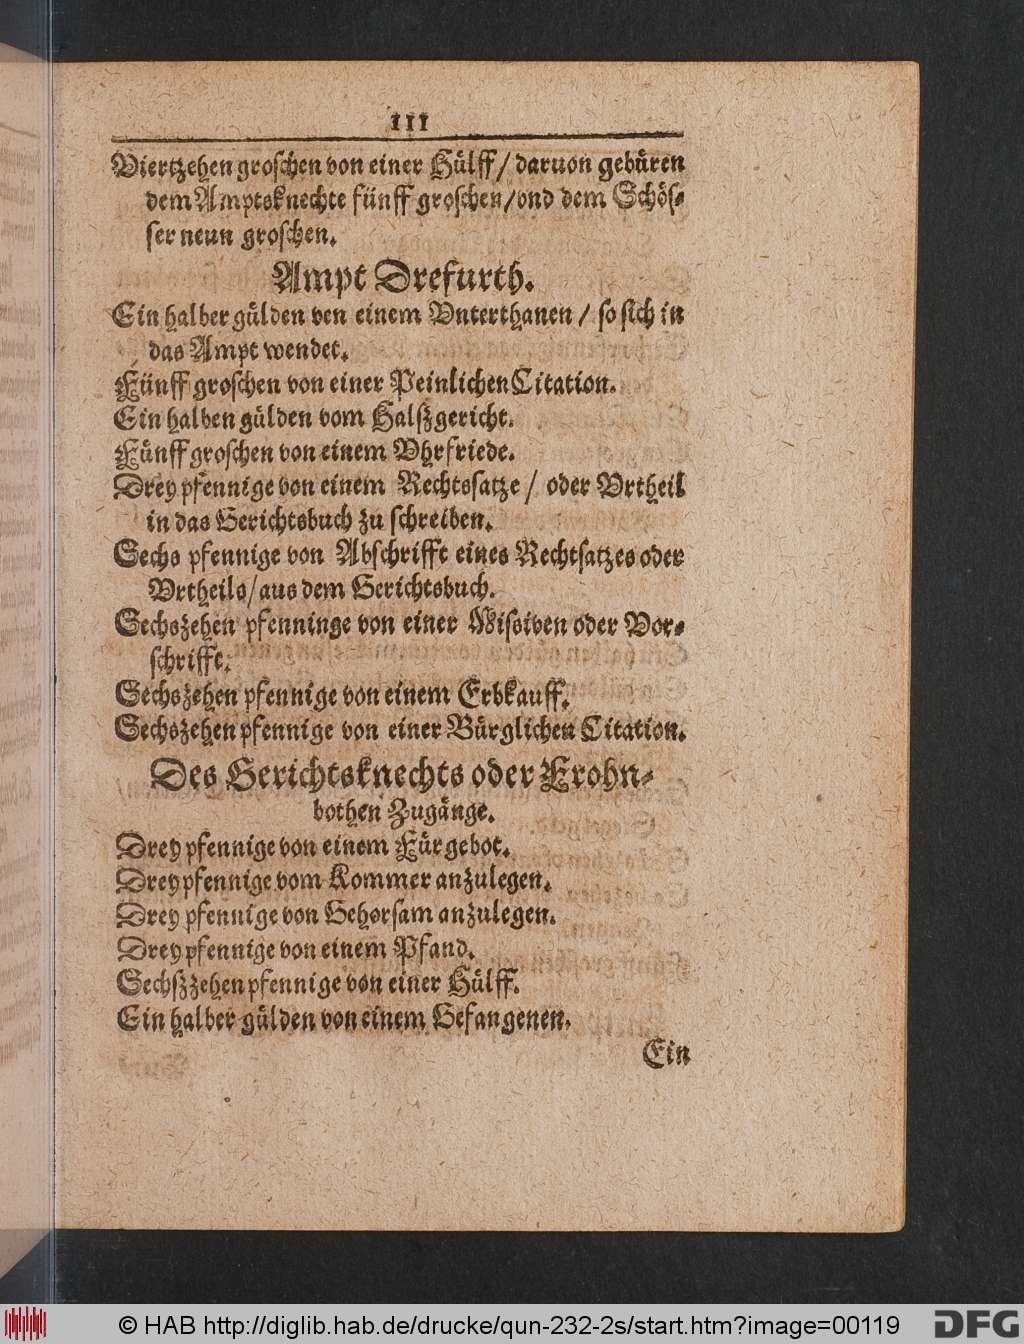 111
Viertzehen groschen von einer Hülff / daruon gebüren
dem Amptsknechte fünff groschen / vnd dem Schös-
ser neun groschen.
Ampt Drefurth.
Ein halber gülden ven einem Vnterthanen / so sich in
das Ampt wendet.
Fünff groschen von einer Peinlichen Citation.
Ein halben gülden vom Halszgericht.
Fünff groschen von einem Vhrfriede.
Drey pfennige von einem Rechtssatze / oder Vrtheil
in das Gerichtsbuch zu schreiben.
Sechs pfennige von Abschrifft eines Rechtsatzes oder
Vrtheils / aus dem Gerichtsbuch.
Sechszehen pfenninge von einer Missiven oder Vor-
schrifft.
Sechszehen pfennige von einem Erbkauff.
Sechszehen pfennige von einer Bürglichen Citation.
Des Gerichtsknechts oder Frohn-
bothen Zugänge.
Drey pfennige von einem Fürgebot.
Drey pfennige vom Kommer anzulegen.
Drey pfennige von Gehorsam anzulegen.
Drey pfennige von einem Pfand.
Sechszzehen pfennige von einer Hülff.
Ein halber gülden von einem Gefangenen.
Ein
© HAB http://diglib.hab.de/drucke/qun-232-2s/start.htm?image=00119
DFG